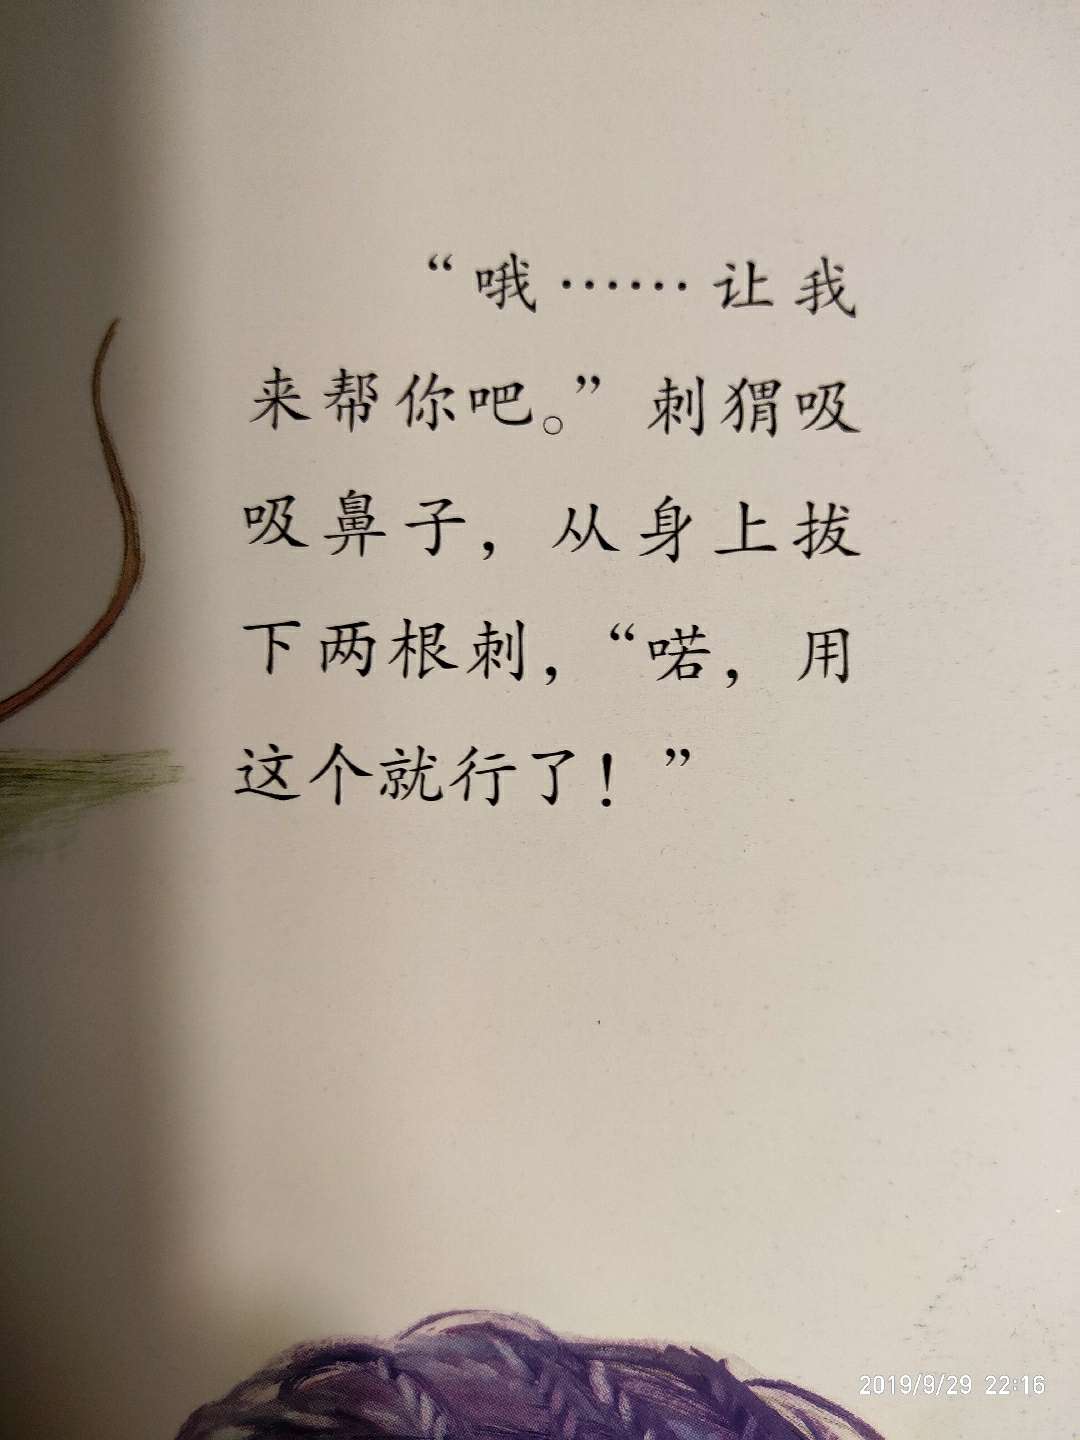 “哦……让我
来帮你吧。”刺猬吸
吸鼻子，从身上拔
下两根刺，“喏，用
这个就行了！”
2019/9/29 22:16